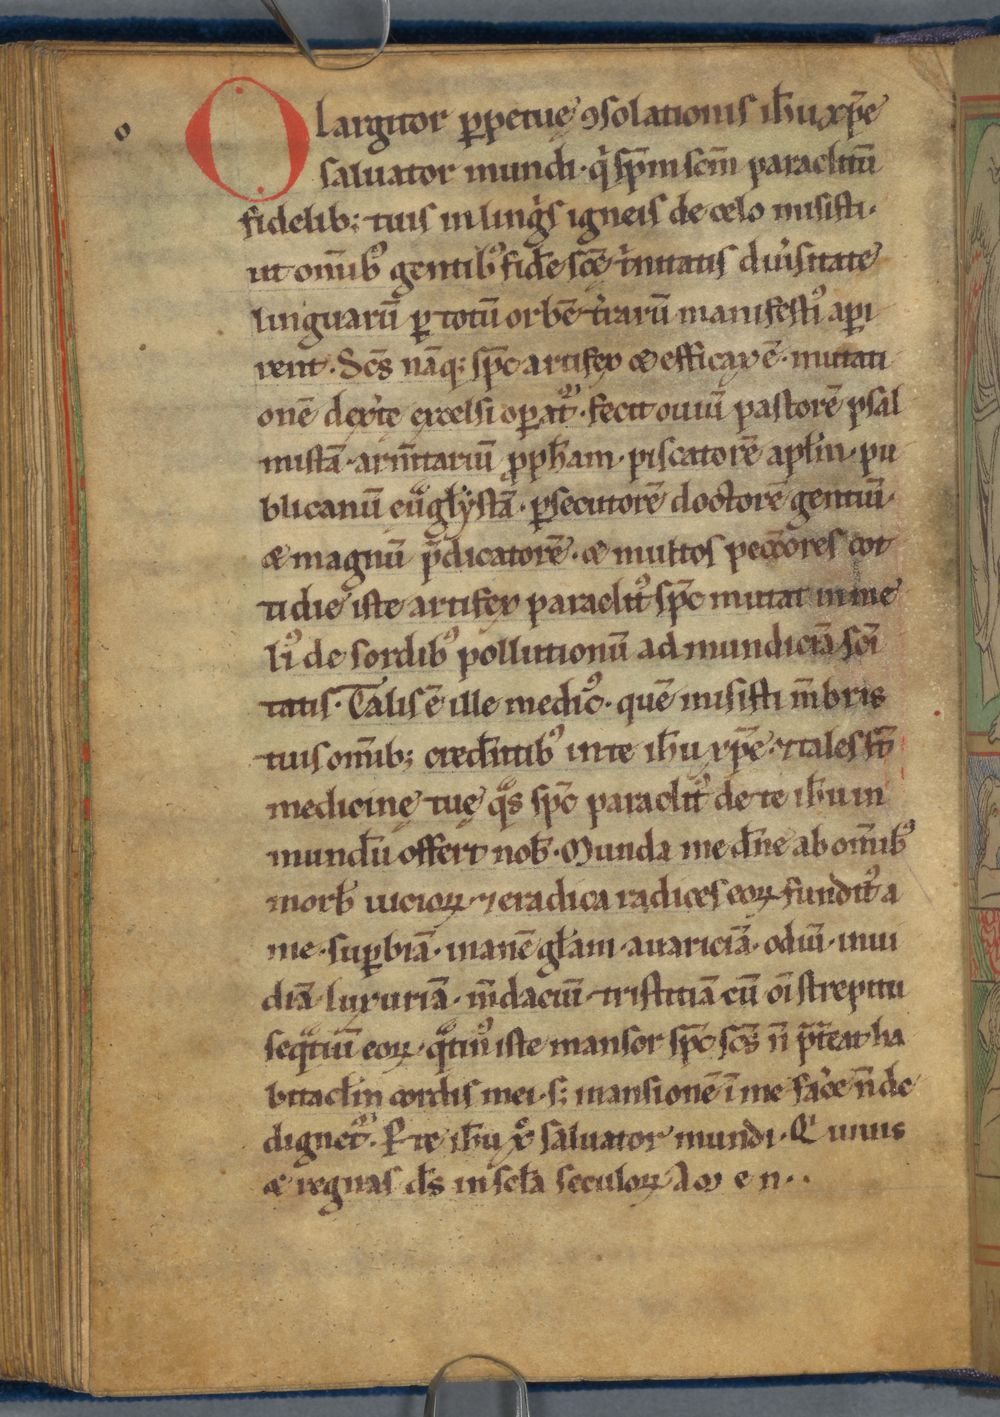 o
O largitor ꝑpetue ꝯsolationis ih̅u xp̅e
saluator mundi · qͥ sp̅m sc̅m paraclitu̅
fidelib; tuis in lingͥs igneis de celo misisti ·
ut om̅ibꝰ gentibꝰ fide̅ sc̅e tͥnitatis diu̾sitate
linguaru̅ ꝑ totu̅ orbe̅ tr̾aru̅ manifestiꝰ aꝑi
rent · Sc̅s na̅q; sp̅c artifex & efficax e̅ · mutati
one̅ dext̾e excelsi oꝑatᷣ · fecit ouiu̅ pastore̅ psal
mista̅ · arm̅tariu̅ ꝓph̅am · piscatore̅ apl̅m · pu
blicanu̅ eu̅gl̅ysta̅ · ꝑsecutore̅ doctore̅ gentiu̅ ·
& magnu̅ p̅dicatore̅ · & multos pecc̅ores cot
tidie iste artifex paraclitꝰ sp̅c mutat in me
liꝰ de sordibꝰ pollutionu̅ ad mundicia̅ sc̅i
tatis · Talis e̅ ille medicꝰ · que̅ misisti m̅bris
tuis om̅ib; cred̅ntibꝰ in te ih̅u xp̅e · ⁊ tales s̅t
medicinę tuę qͣs sp̅c paraclitꝰ de te ih̅u in
mund̅u offert nob̅ · Munda me dn̅e ab om̅ibꝰ
morb̅ uicioꝝ · ⁊ eradica radices eoꝝ funditꝰ a
me · suꝑbia̅ · inane̅ gl̅am · auaricia̅ · odiu̅ · inui
dia̅ · luxuria̅ · m̅daciu̅ · tristitia̅ cu̅ oi̅ strepitu
seqͣtiu̅ eoꝝ · qͣtinꝰ iste mansor sp̅c sc̅s n̅ p̅t̾eat ha
bitacl̅m cordis mei · s; mansione̅ i̅ me fac̾e n̅ de
dignetᷣ · P̲ te ih̅u xͦ saluator mundi · Qͥ uiuis
& regnas d̅s in sc̅la seculoꝝ A m e n · ·